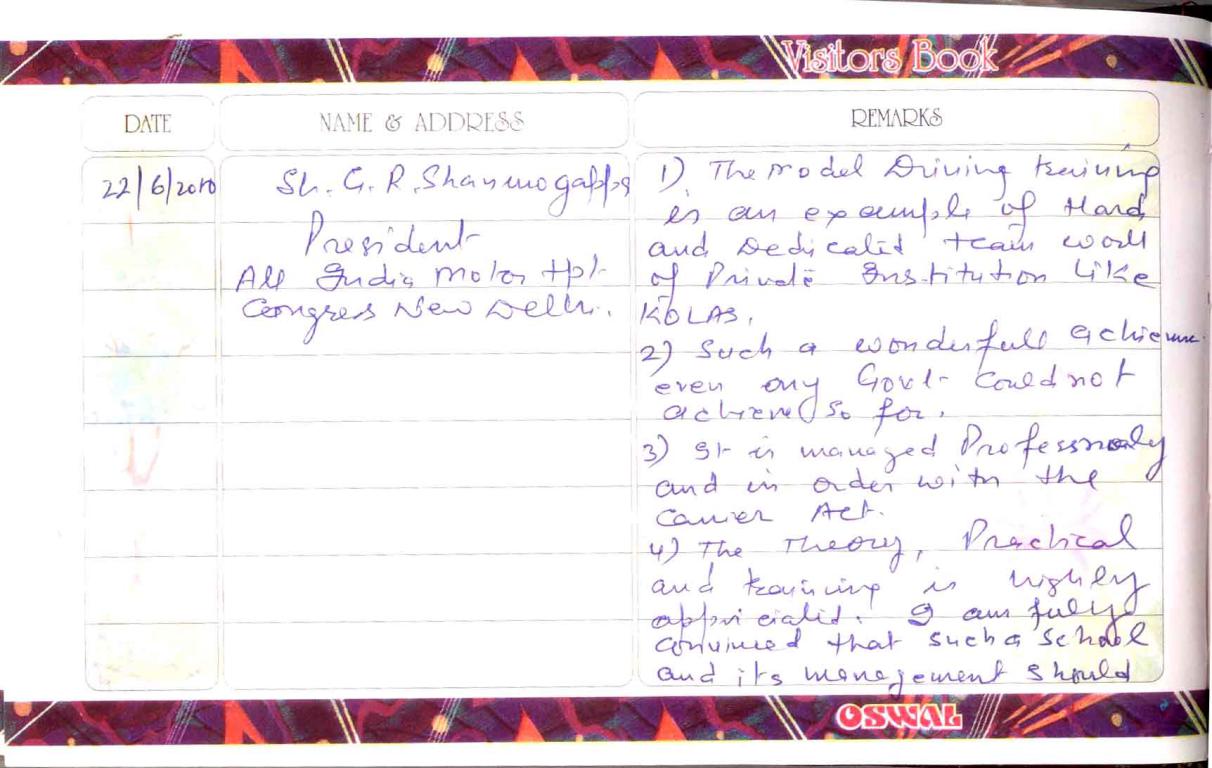 Visitors Book
DATE
NAME & ADDRESS
REMARKS
22/6/2010
Sh. G. R. Shanmugappa
President
All India Motor tpt
Congress New Delhi.
1) The Model Driving training
is an example of Hard
and Dedicated team work
of Private Institution Like
KOLAS.
2) Such a wonderfull
even any Govt- could not
achieved so for.
3) It is managed
and in order with the
Carrier Act.
4) The Theory, Practical
and training is highly
appriciated. I am fully
convinced that such a School
and its management should
OSWAL